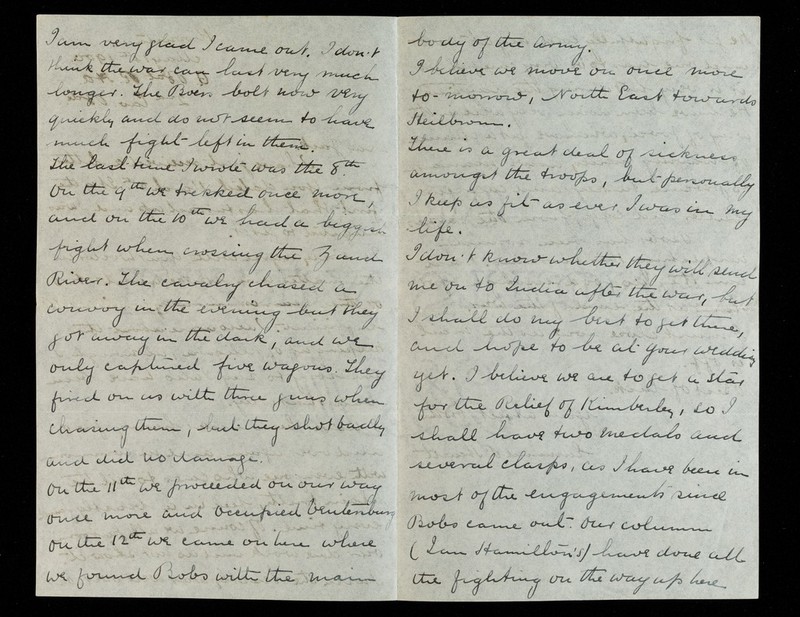 I am very glad I came out. I don't
think the war can last very much
longer. The Boers bolt now very
quickly and do not seem to have
much fight left in them.
The last time I wrote was the 8th.
On the 9th we trekked once more,
and on the 10th we had a biggish
fight when crossing the Zand
River. The cavalry chased a
convoy in the evening but they
got away in the dark, and we
only captured five wagons. They
fired on us with three guns when
chasing them, but they shot badly
and did no damage.
On the 11th we proceeded on our way
once more and occupied Ventersburg
On the 12th we came on here where
we found Bobs with the main
body of the army.
I believe we move on once more
to-morrow, North East towards
Heilbronn.
There is a great deal of sickness
amongst the troops, but personally
I keep as fit as ever I was in my
life.
I don't know whether they will send
me on to India after the war, but
I shall do my best to get there,
and hope to be at your wedding
yet. I believe we are to get a star
for the Relief of Kimberley, so I
shall have two medals and
several clasps, as I have been in
most of the engagements since
Bobs came out. Our column
(Ian Hamilton's) have done all
the fighting on the way up here